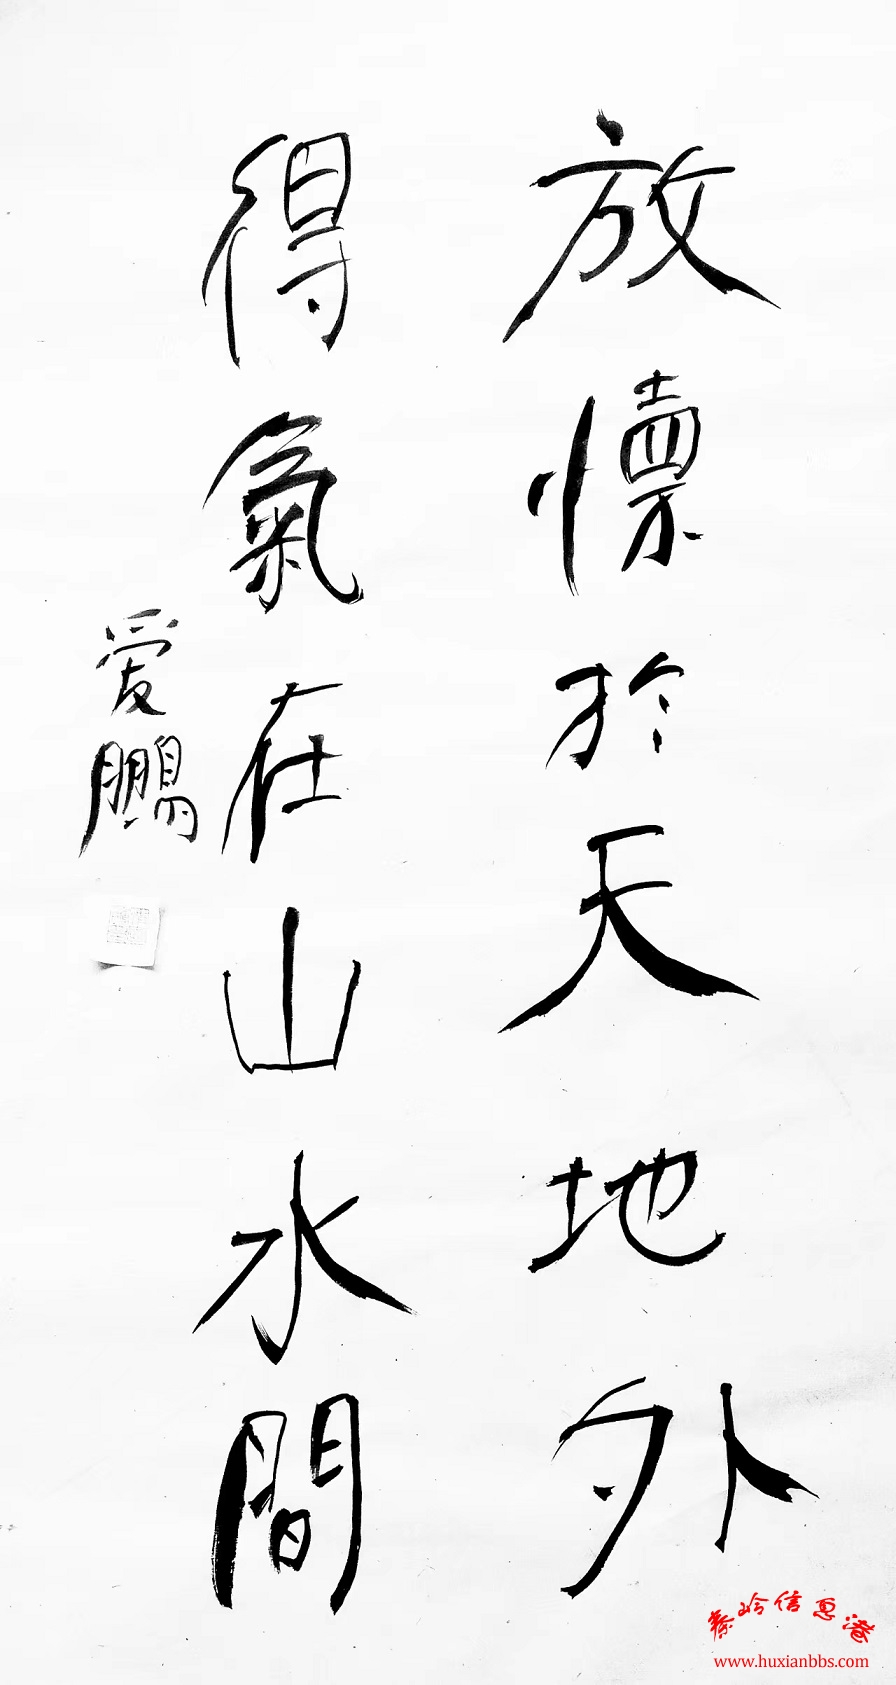 放懷於天地外
得氣在山水間
爱鵬
秦岭信息港
www.huxianbbs.com